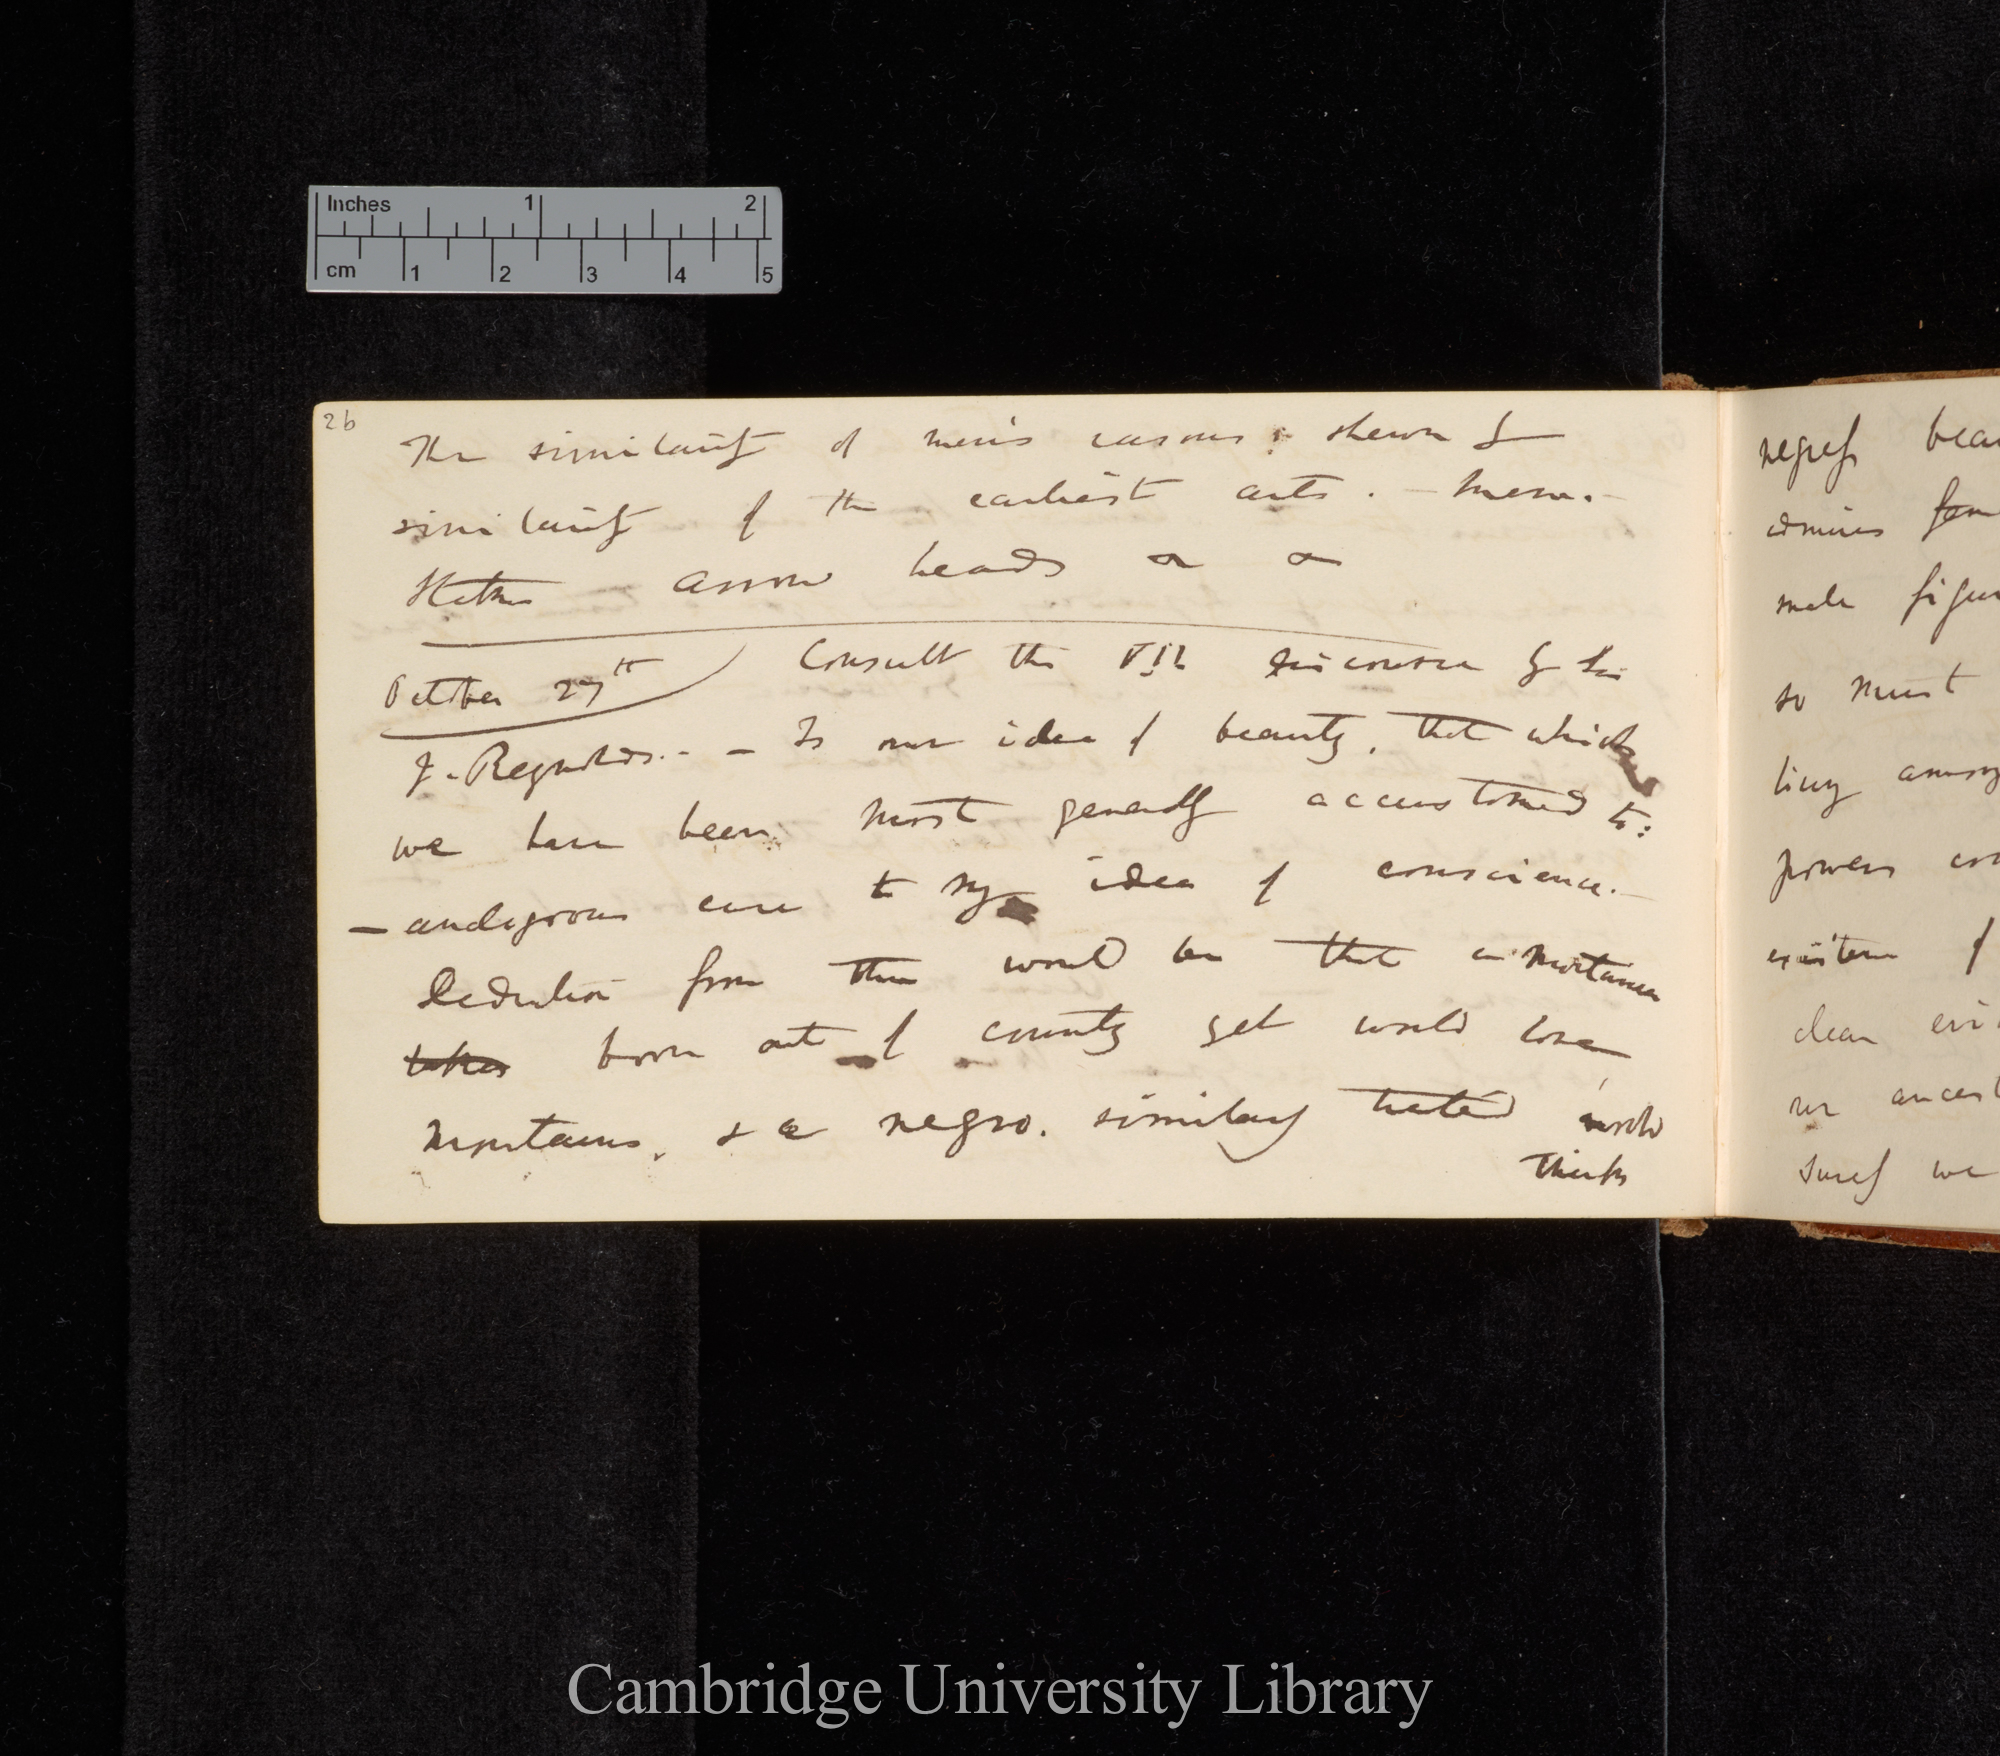 Inches 1 2
cm 1 2 3 4 5
26
The similarity of men's reasons: shewn by
similarity of the earliest arts. — Mem.
Stokes arrow heads
October 27th Consult the VII discourse by Sir
J. Reynolds. — Is our idea of beauty, that which
we have been most generally accustomed to:
— analogous case to my idea of conscience. —
deduction from this would be that a mountaineer
takes born out of country yet would love
mountains, & a negro. similarly treated would
think
negress beau
admires fem
male figur
so must
living among
powers
existence of
clear evi
our ancest
surely we
Cambridge University Library